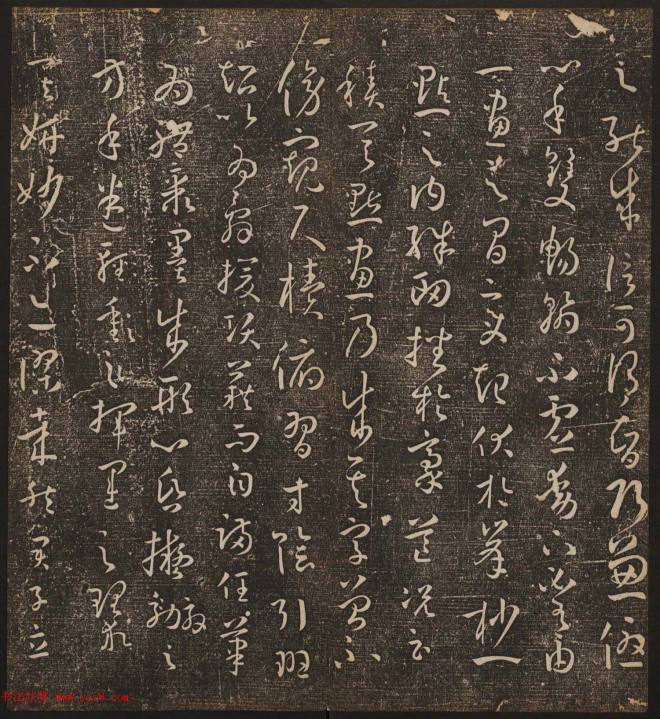 之能成信可謂智巧兼優
心手雙暢翰不虛動下必有由
一畫之間變起伏於峯杪一
點之內殊衄挫於豪芒況云
積其點畫乃成其字曾不
傍窺尺牘俯習寸陰引班
超以為辭援項籍而自滿任筆
為體聚墨成形心昏擬效之
方手迷揮運之理求
其妍妙不亦謬哉然君子立
书法欣赏 www.yac8.com